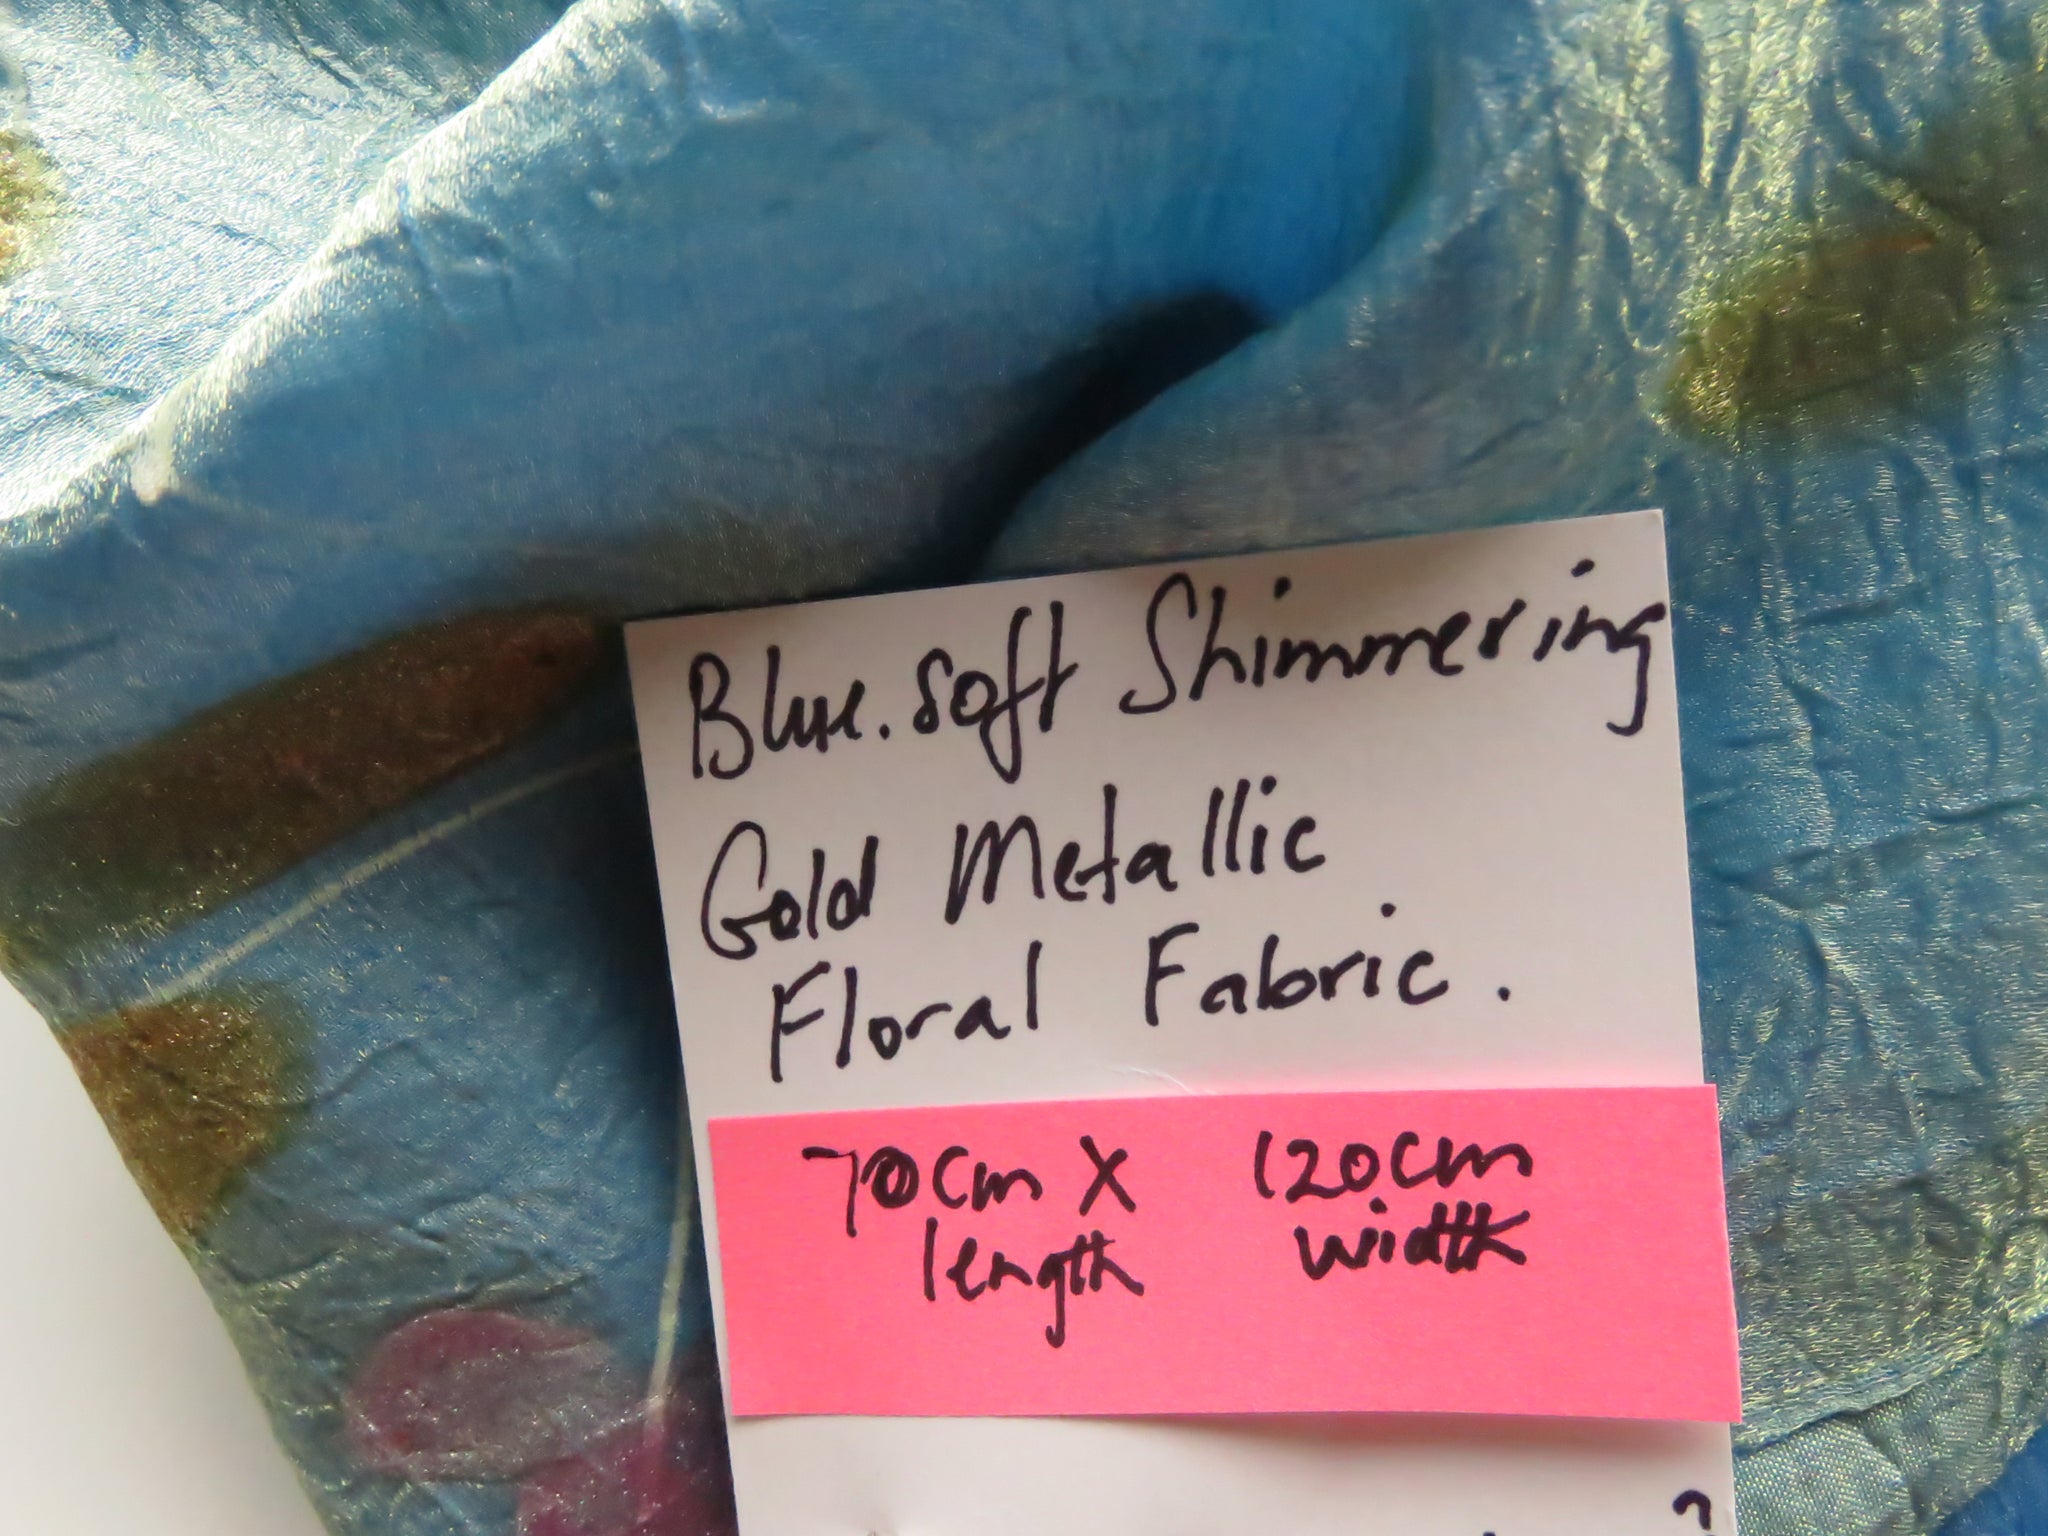 Blue. Soft Shimmering
Gold Metallic
Floral Fabric.
70cm X 120cm
length width